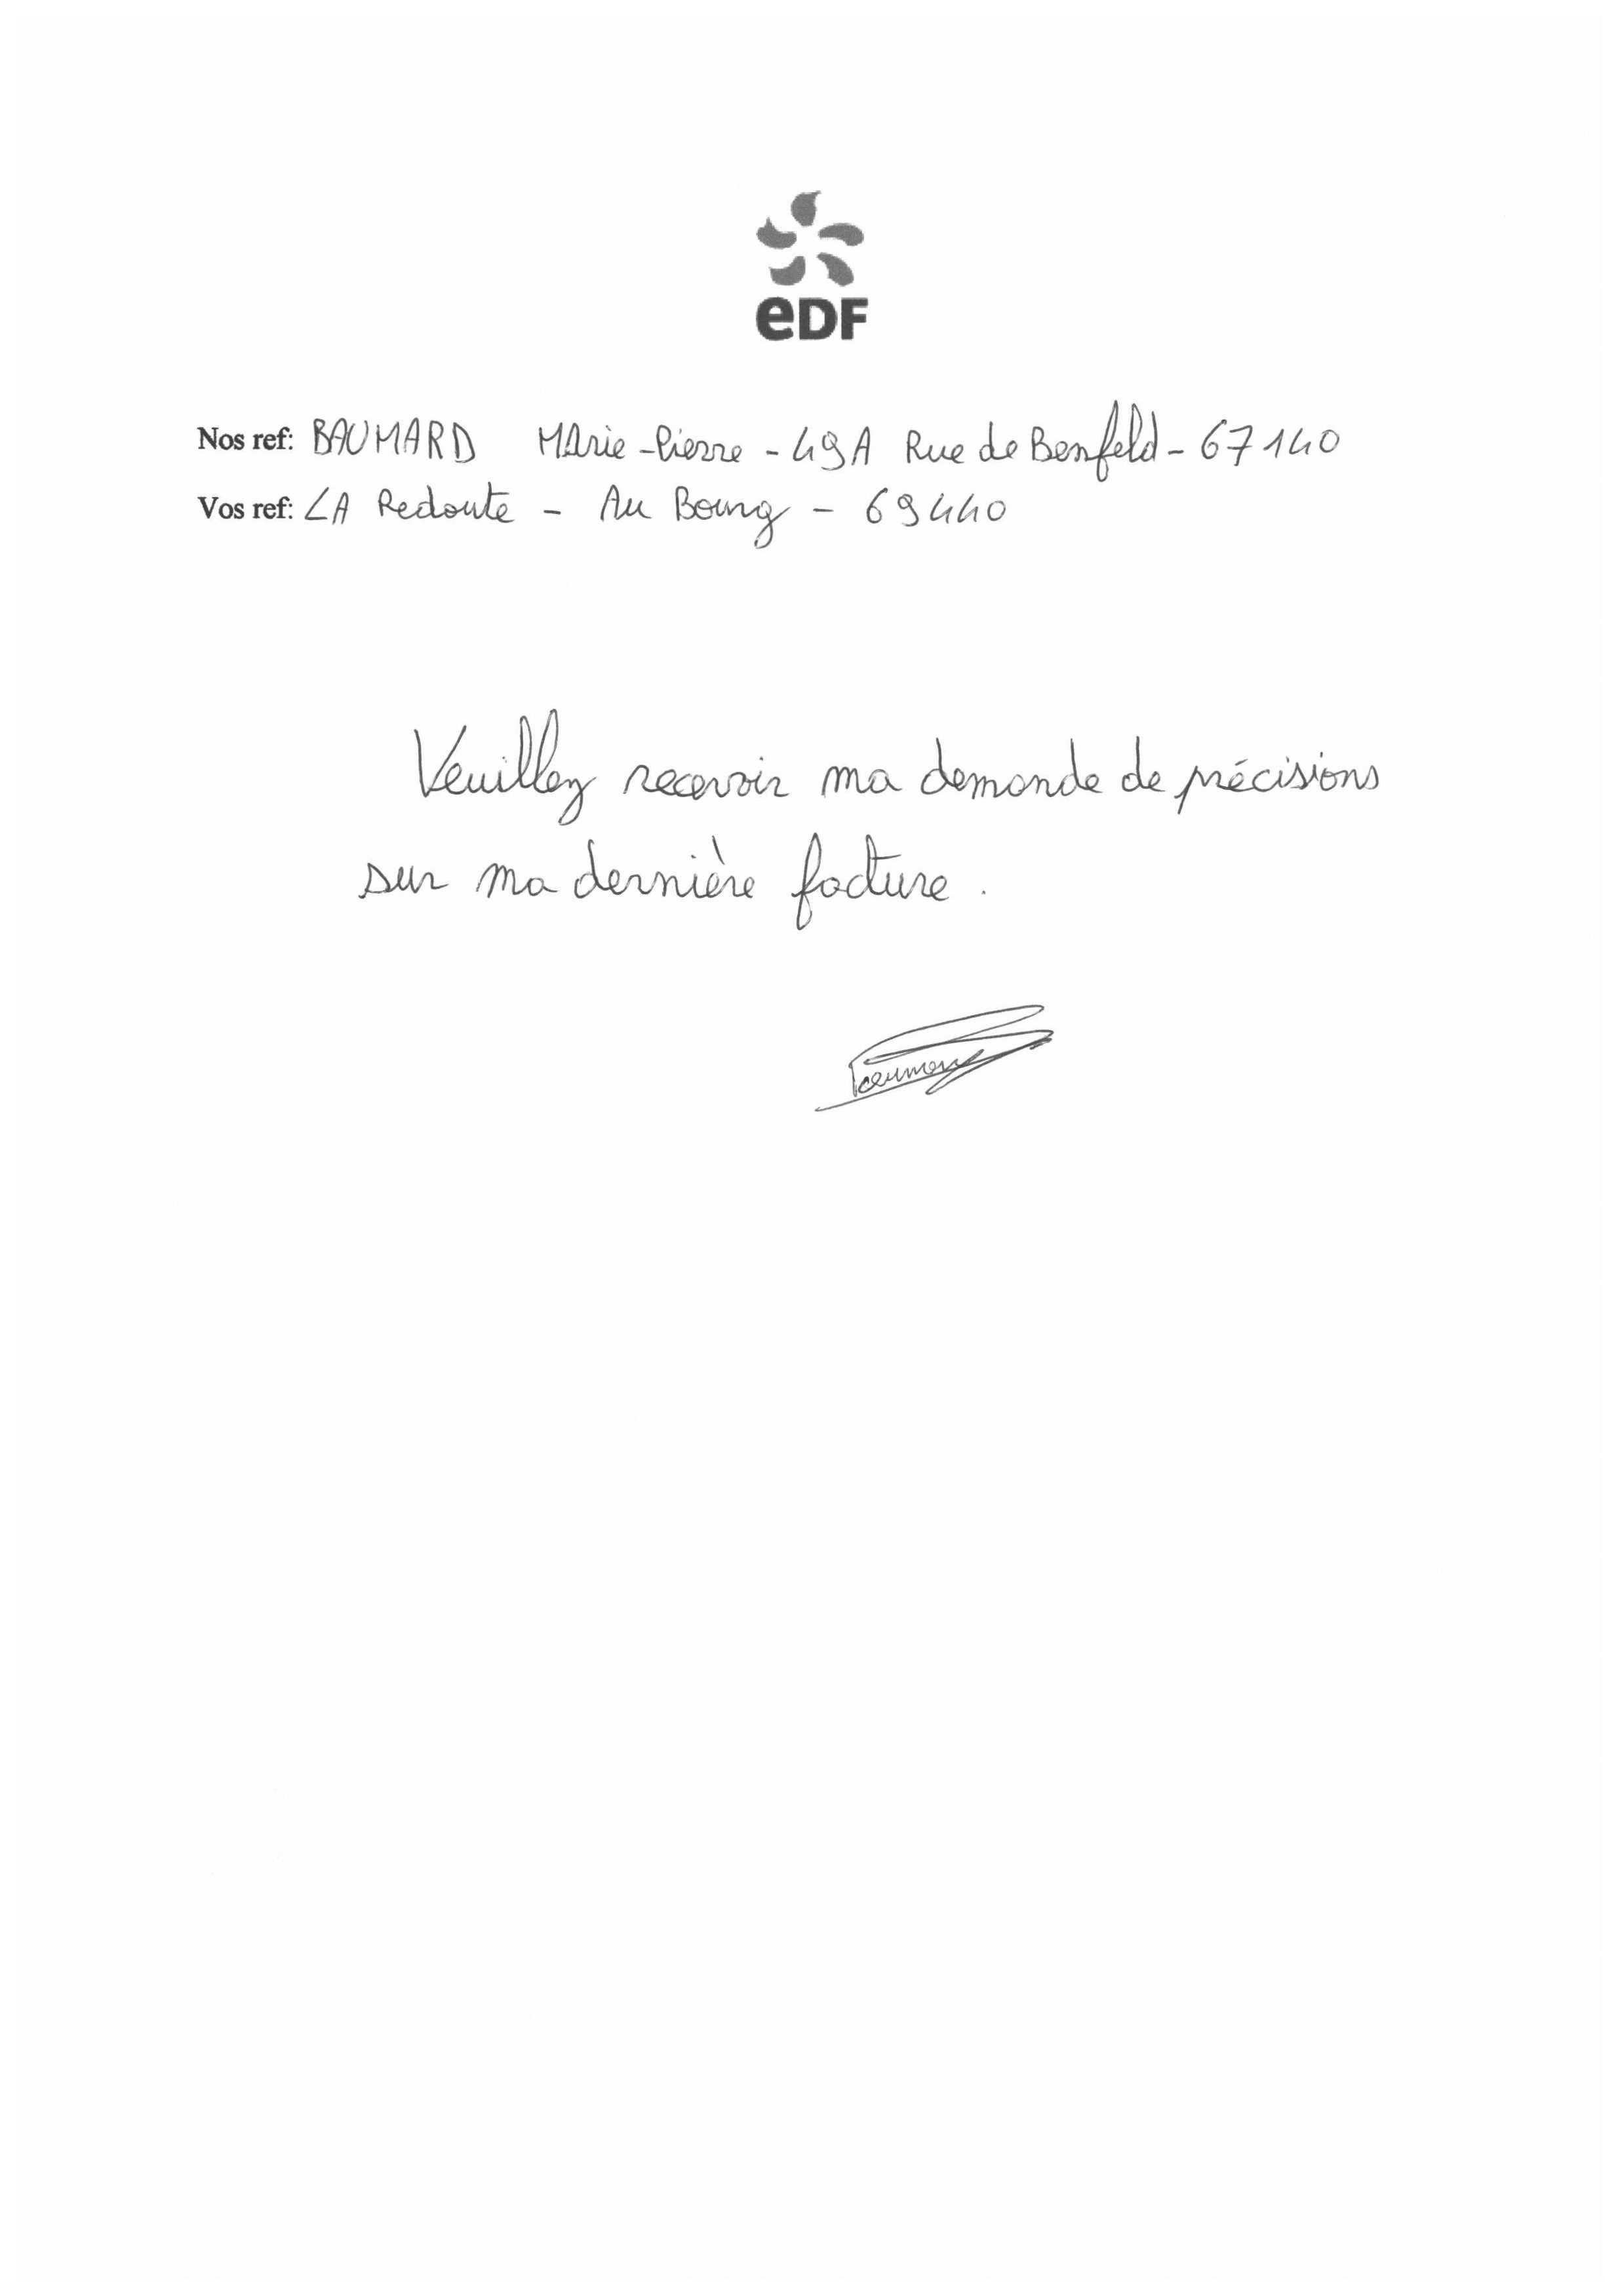 eDF
Nos ref: BAUMARD MArie-Pierre - 49A Rue de Benfeld - 67140
Vos ref: LA Redoute - Au Bourg - 69440
Veuillez recevoir ma demande de précisions
sur ma dernière facture.